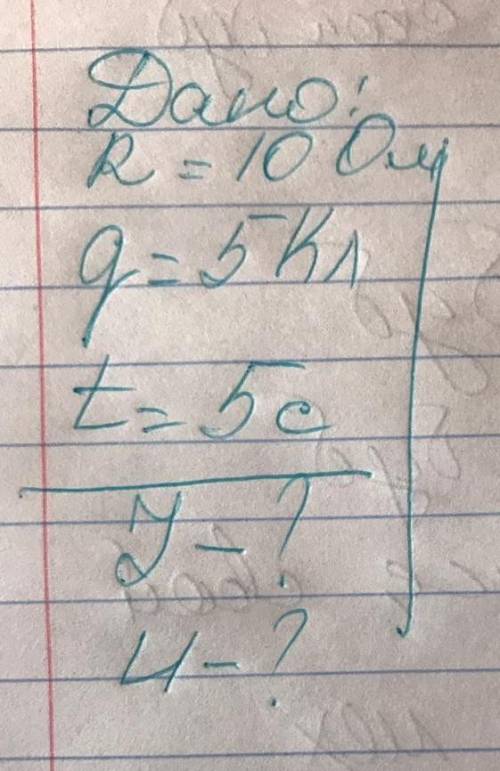 Дано:
R = 10 Ом
q = 5 Кл
t = 5 с
I - ?
U - ?